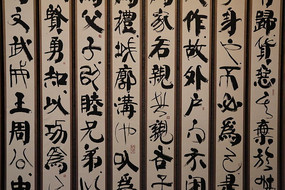 歸貨惡其棄於
身也不必為己
作故外戶而不閉
家各親其親各
為禮城郭溝池以
父子以睦兄弟以
賢勇知以功為
文武成王周公